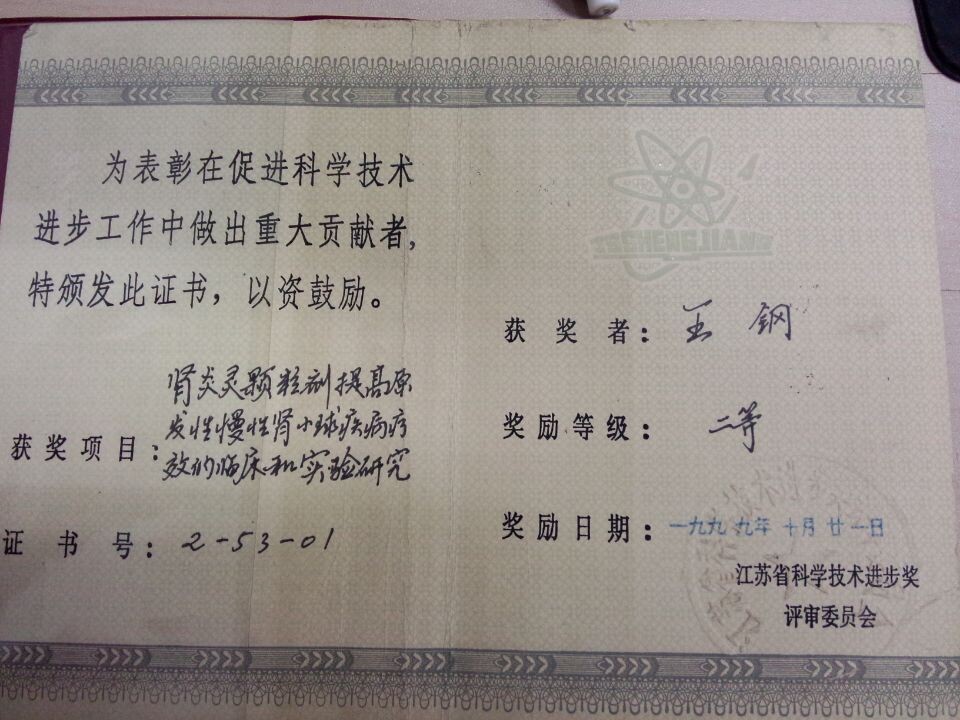 为表彰在促进科学技术
进步工作中做出重大贡献者,
特颁发此证书，以资鼓励。
获奖项目：
肾炎灵颗粒剂提高原
发性慢性肾小球疾病疗
效的临床和实验研究
证书号：2-53-01
获奖者：王钢
奖励等级：二等
奖励日期：一九九九年十月廿一日
江苏省科学技术进步奖
评审委员会